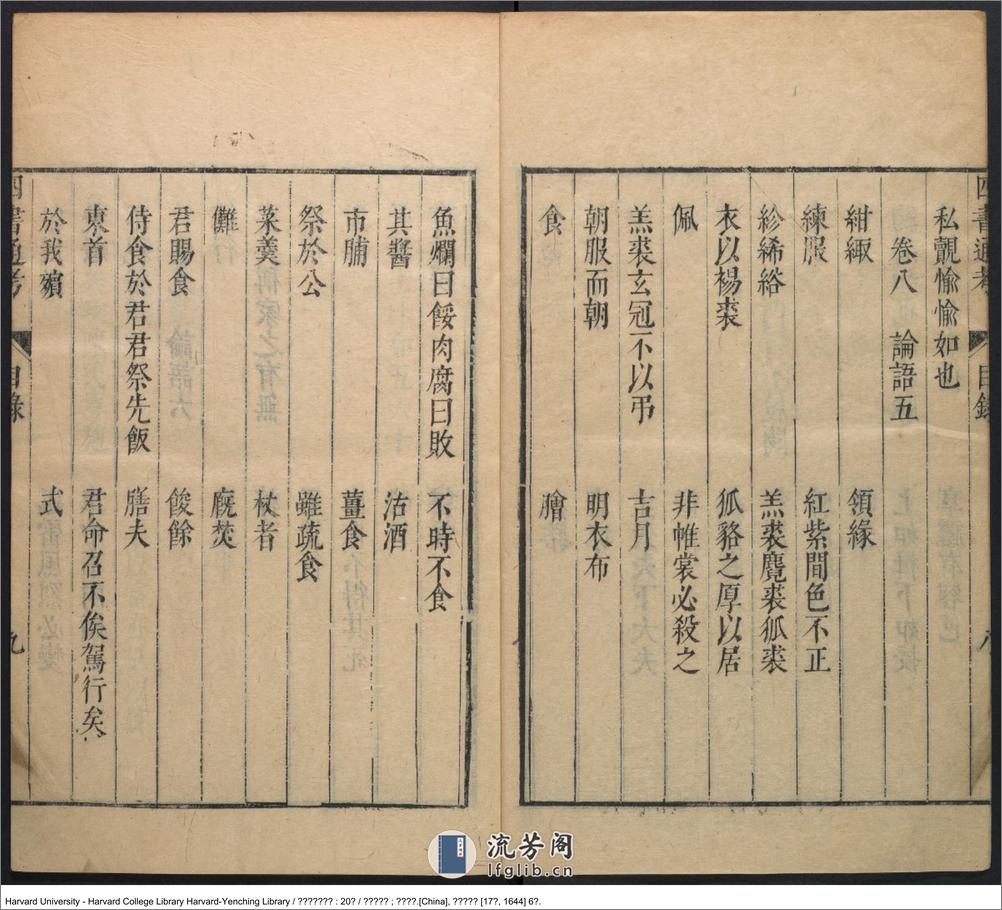 四書通考 目錄 八
私覿愉愉如也
卷八 論語五
紺緅 領緣
練服 紅紫間色不正
袗絺綌 羔裘麑裘狐裘
衣以裼裘 狐貉之厚以居
佩 非帷裳必殺之
羔裘玄冠不以弔 吉月
朝服而朝 明衣布
食 膾
魚爛曰餒肉腐曰敗 不時不食
其醬 沽酒
市脯 薑食
祭於公 雖疏食
菜羹 杖者
儺 廐焚
君賜食 餕餘
侍食於君君祭先飯 膳夫
東首 君命召不俟駕行矣
於我殯 式
四書通考 目錄 九
流芳阁
lfglib.cn
Harvard University - Harvard College Library Harvard-Yenching Library / ??????? : 20? / ????? ; ????.[China], ????? [17?, 1644] 6?.